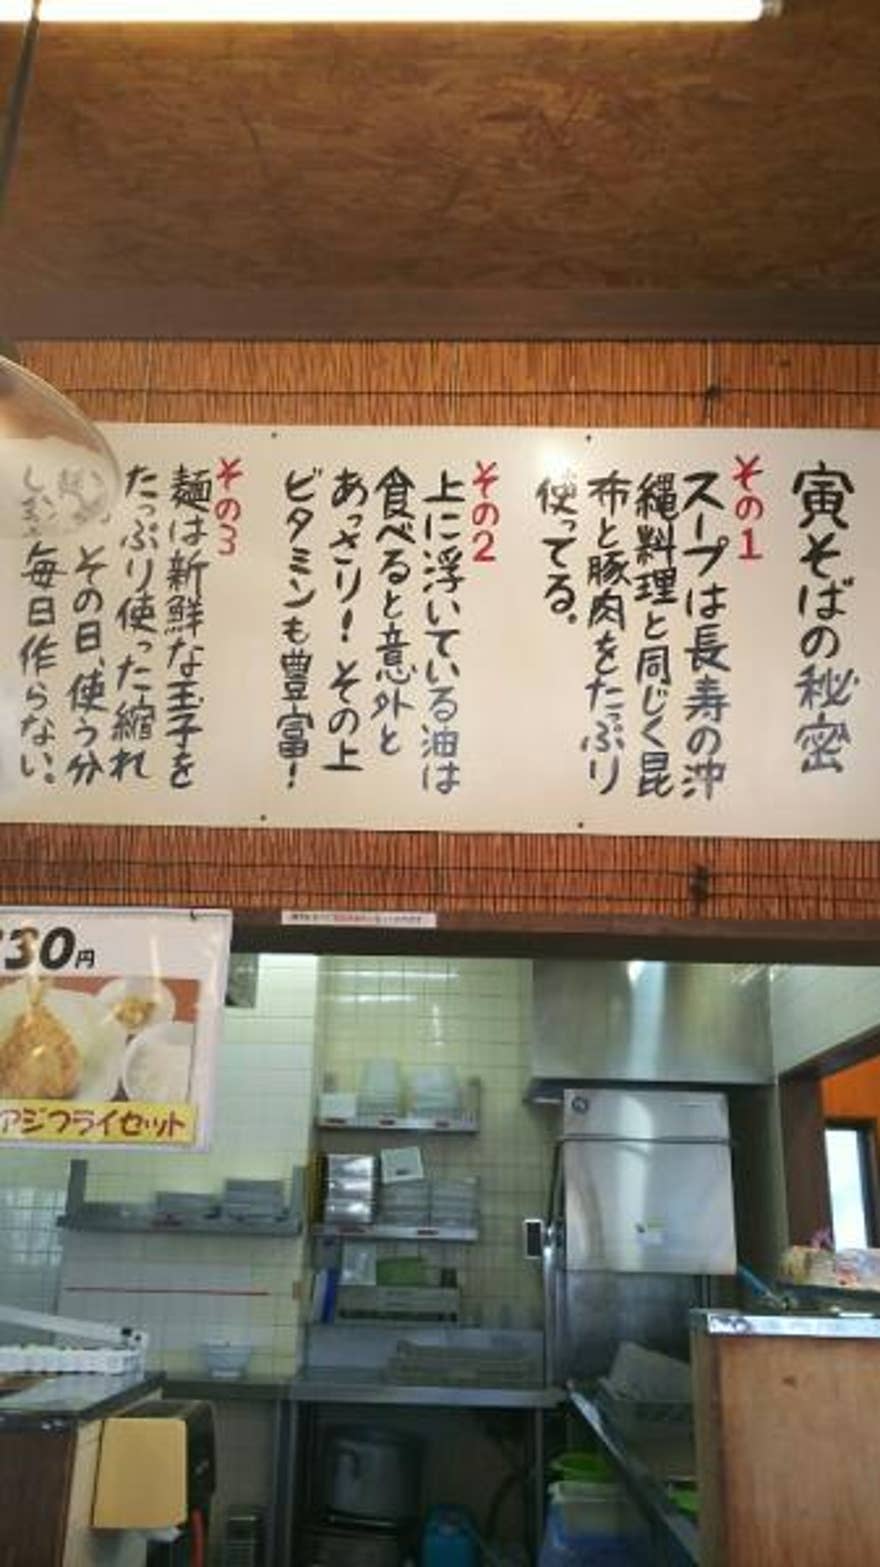 寅そばの秘密
その1
スープは長寿の沖
縄料理と同じく昆
布と豚肉をたっぷり
使ってる。
その2
上に浮いている油は
食べると意外と
あっさり！その上
ビタミンも豊富！
その3
麺は新鮮な玉子を
たっぷり使った縮れ
その日、使う分
毎日作らない。
30円
アジフライセット